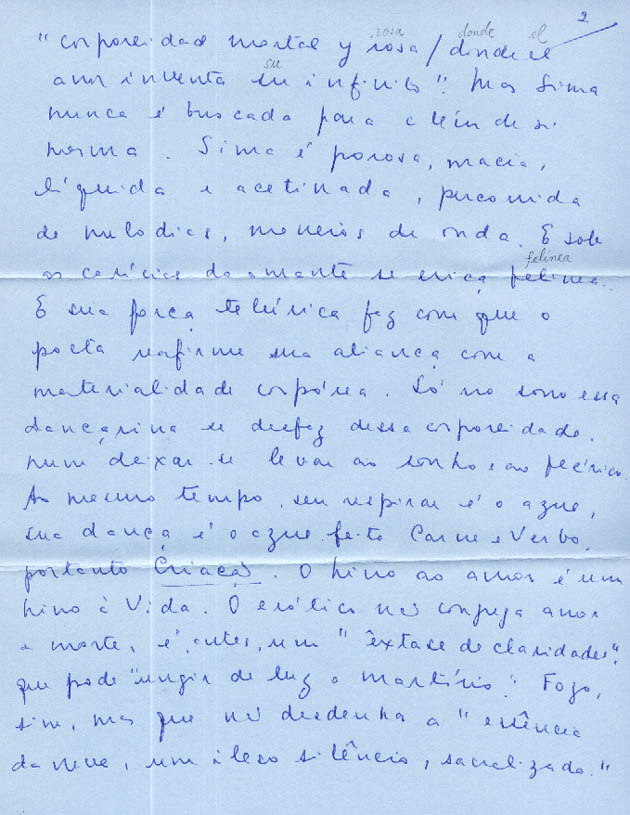 2
rosa donde el
"corporeidad mortal y rosa / donde el
su
amor inventa su infinito". Mas Sima
nunca é buscada para além de si
mesma. Sima é porosa, macia,
líquida e acetinada, percorrida
de melodias, meneios de onda. E sob
felínea
as carícias do amante se eriça felínea.
E sua força telúrica faz com que o
poeta reafirme sua aliança com a
materialidade corpórea. Só no sono essa
dançarina se desfaz dessa corporeidade,
num deixar-se levar ao sonho e ao feérico.
Ao mesmo tempo, seu respirar é o azul,
sua dança é o azul feito Carne e Verbo,
portanto Criação. O hino ao amor é um
hino à Vida. O erótico não conjuga amor
e morte, é, antes, um "êxtase de claridades",
que pode "ungir de luz o martírio". Fogo,
sim, mas que não desdenha a "essência
da neve, um ileso silêncio, sacralizado."